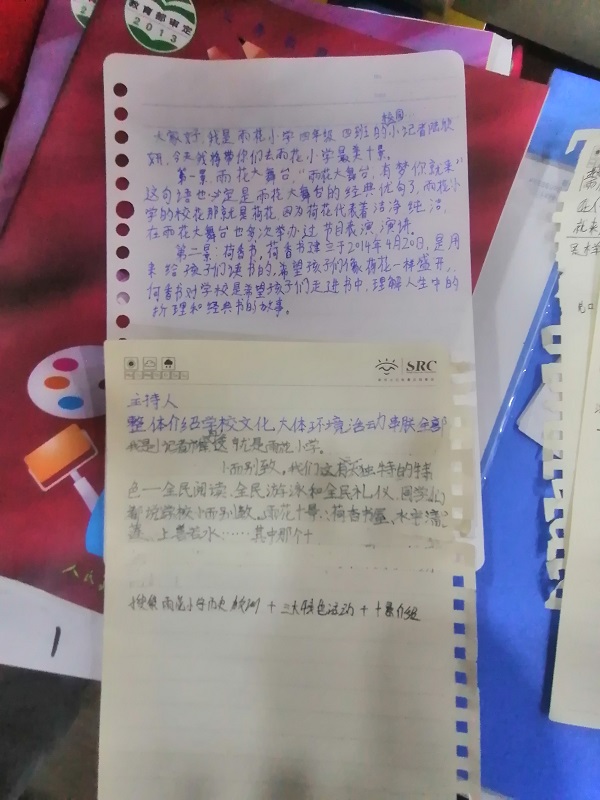 教育部审定
2013
校园
大家好,我是雨花小学四年级四班的小记者陆欣
妍,今天我将带你们去雨花小学最美十景。
第一景:雨花大舞台,“雨花大舞台,有梦你就来”
这句语也定是雨花大舞台的经典优句了,雨花小
学的校花那就是荷花,因为荷花代表着洁净纯洁,
在雨花大舞台也每次举办过节目表演,演讲。
第二景:荷香书,荷香书建立于2014年4月20日,是用
来给孩子们读书的,希望孩子们像荷花一样盛开,
何香书对学校是希望孩子们走进书中,理解人生中的
折理和经典书的故事。
SRC
主持人
整体介绍学校文化,大体环境活动串联
我是小记者 这就是雨花小学。
小而别致,我们这有独特的特
色——全民阅读、全民游泳和全民礼仪,同学们
都说我校小而别致,雨花十景:荷香书屋、
莲、上善若水……其中那个十
雨花小学历史 + 三大特色活动 + 十景介绍
人民
1